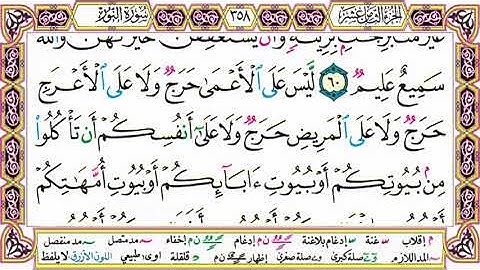 الجزء الثامن عشر ٣٥٨ سورة النور
غَيْرَ مُتَبَرِّجَاتٍ بِزِينَةٍ وَأَن يَسْتَعْفِفْنَ خَيْرٌ لَّهُنَّ وَاللَّهُ
سَمِيعٌ عَلِيمٌ ٦٠ لَّيْسَ عَلَى الْأَعْمَىٰ حَرَجٌ وَلَا عَلَى الْأَعْرَجِ
حَرَجٌ وَلَا عَلَى الْمَرِيضِ حَرَجٌ وَلَا عَلَىٰ أَنفُسِكُمْ أَن تَأْكُلُوا
مِن بُيُوتِكُمْ أَوْ بُيُوتِ ءَابَائِكُمْ أَوْ بُيُوتِ أُمَّهَاتِكُمْ
م إقلاب س غنة إدغام بلاغنة إدغام ن م إخفاء مد متصل مد منفصل
المد اللازم صلة كبرى صلة صغرى إظهار ن م قلقلة اوى: طبيعي اللون الأزرق لا يلفظ